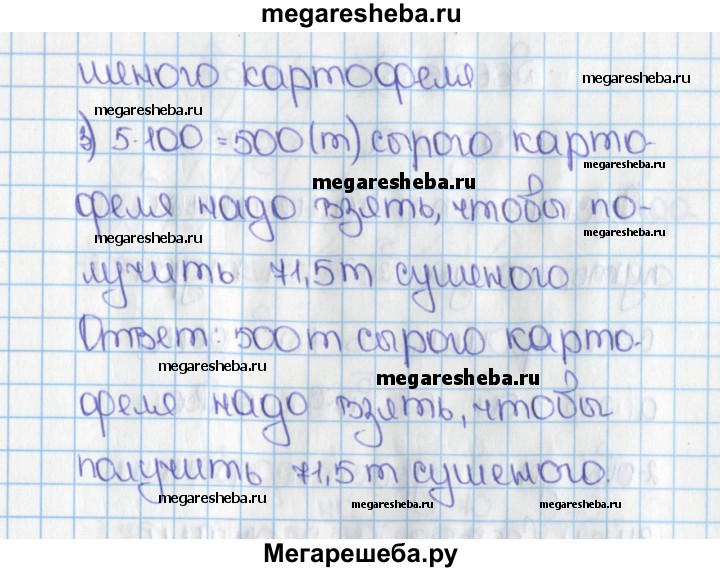 megaresheba.ru
шеного картофеля
megaresheba.ru
megaresheba.ru
3) 5·100 = 500 (т) сырого карто-
megaresheba.ru
megaresheba.ru
феля надо взять, чтобы по-
megaresheba.ru
megaresheba.ru
лучить 71,5 т сушеного
Ответ: 500 т сырого карто-
megaresheba.ru
megaresheba.ru
феля надо взять, чтобы
получить 71,5 т сушеного.
megaresheba.ru
megaresheba.ru
Мегарешеба.ру